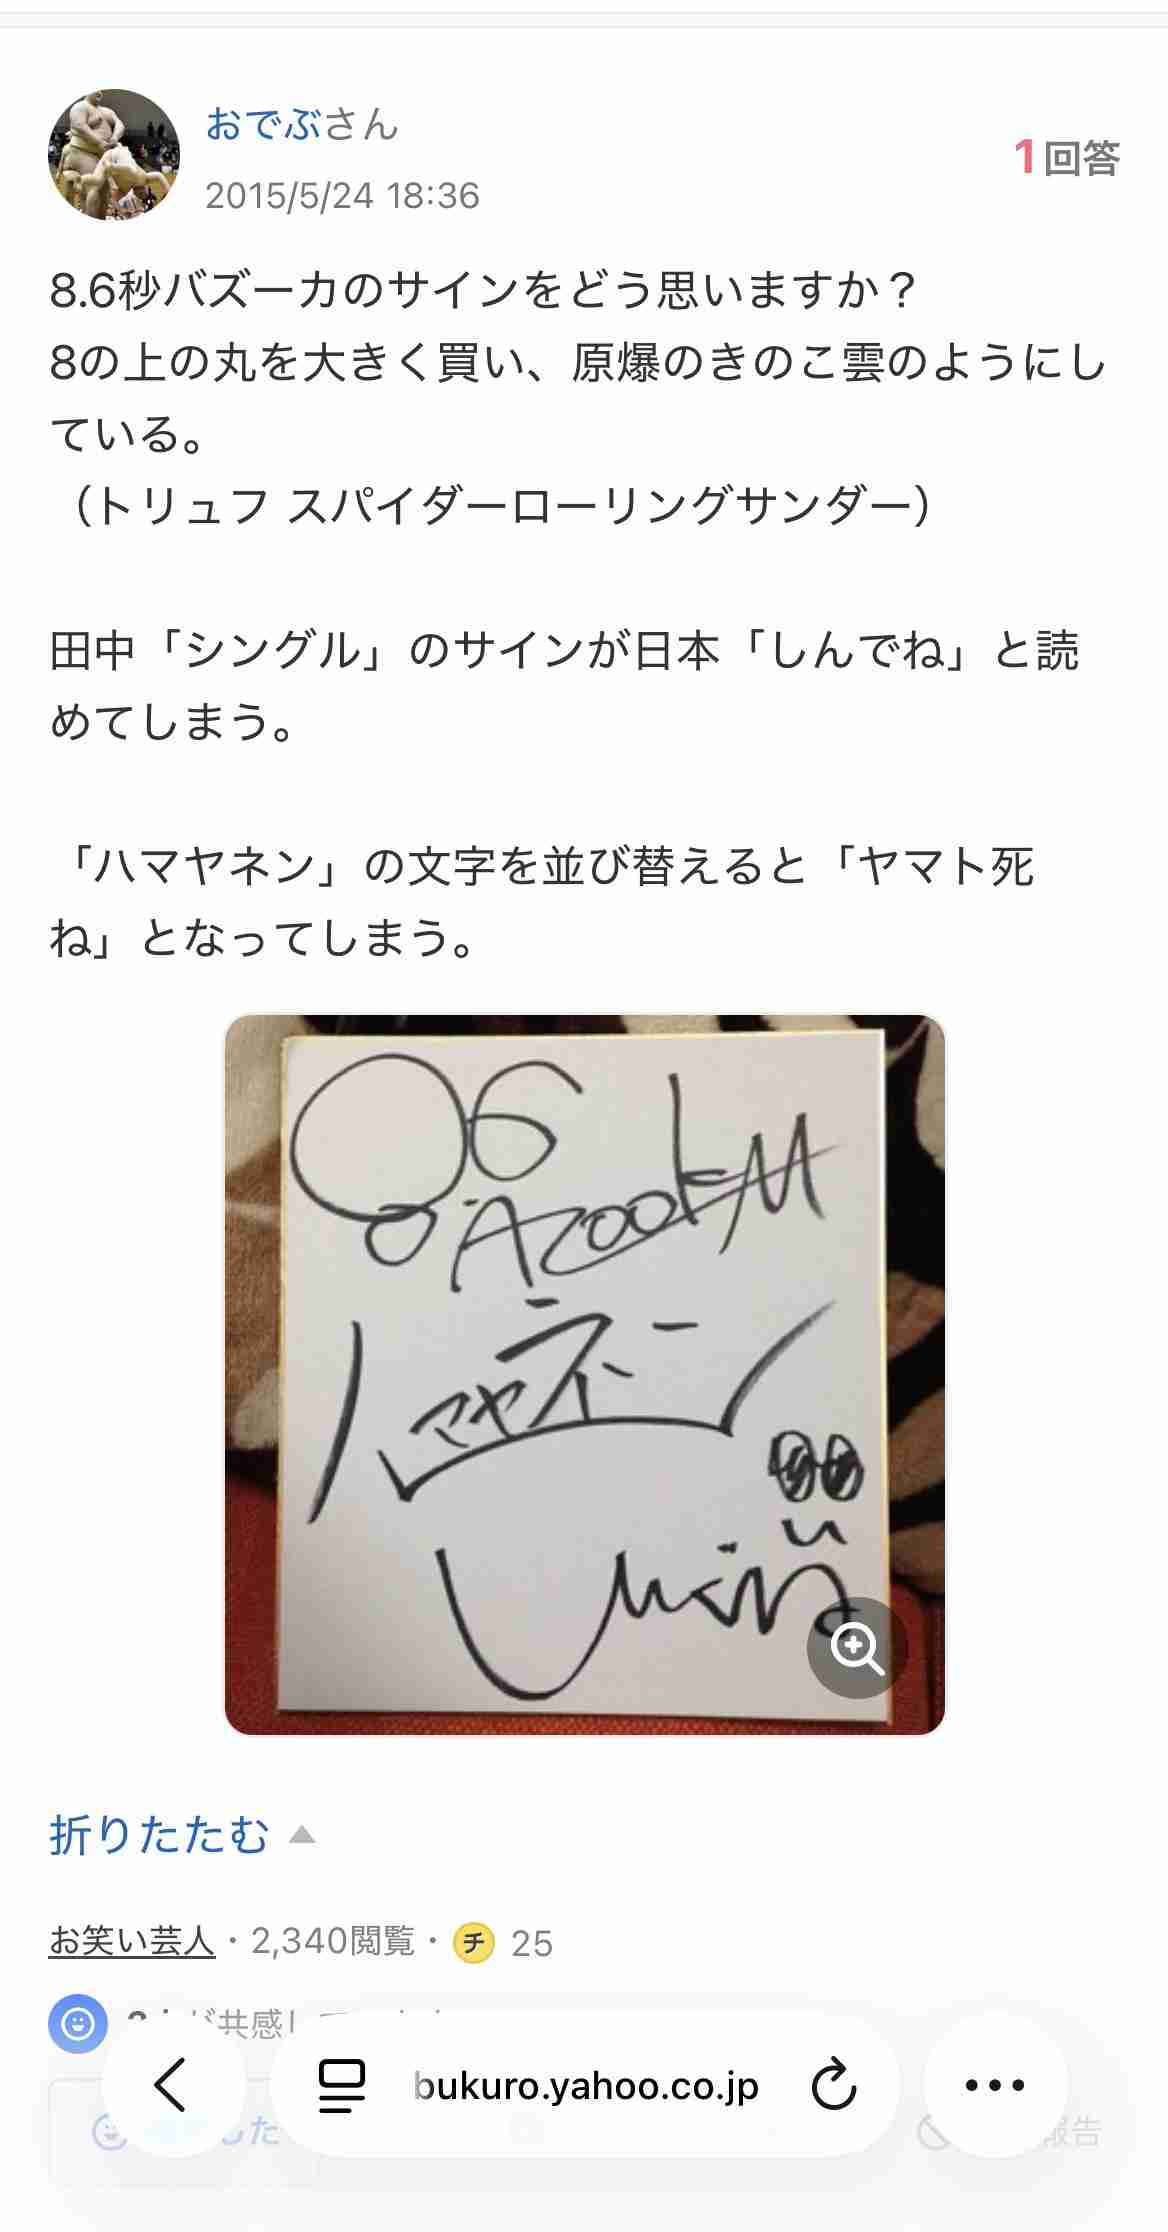 おでぶさん
2015/5/24 18:36
1回答
8.6秒バズーカのサインをどう思いますか？
8の上の丸を大きく買い、原爆のきのこ雲のようにし
ている。
（トリュフ スパイダーローリングサンダー）
田中「シングル」のサインが日本「しんでね」と読
めてしまう。
「ハマヤネン」の文字を並び替えると「ヤマト死
ね」となってしまう。
86
AzookM
ハマヤネン
折りたたむ
お笑い芸人・2,340閲覧・チ 25
共感し
bukuro.yahoo.co.jp
した
報告